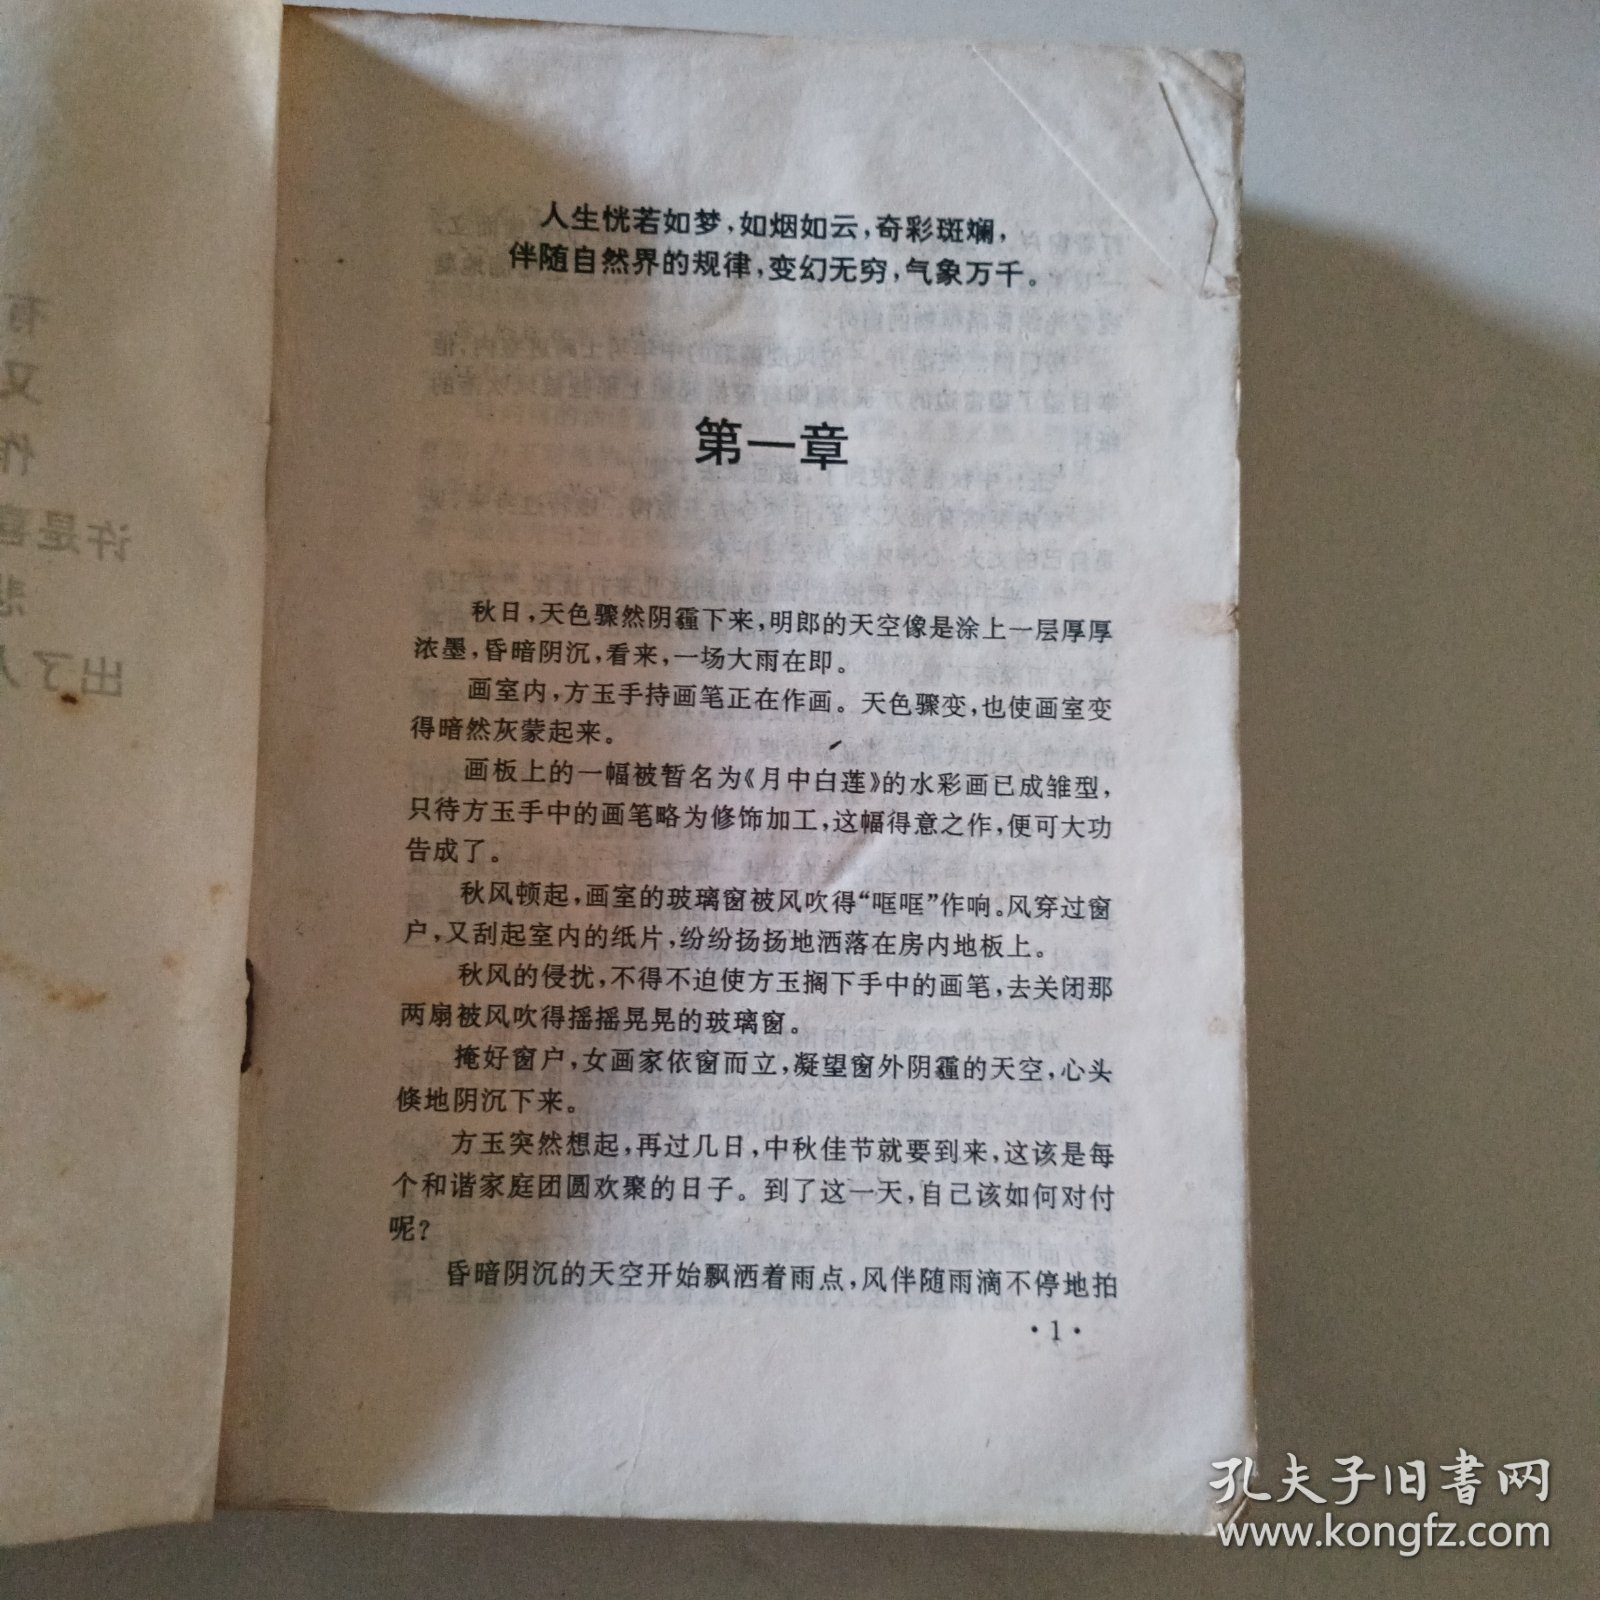 人生恍若如梦，如烟如云，奇彩斑斓，
伴随自然界的规律，变幻无穷，气象万千。
第一章
秋日，天色骤然阴霾下来，明郎的天空像是涂上一层厚厚
浓墨，昏暗阴沉，看来，一场大雨在即。
画室内，方玉手持画笔正在作画。天色骤变，也使画室变
得暗然灰蒙起来。
画板上的一幅被暂名为《月中白莲》的水彩画已成雏型，
只待方玉手中的画笔略为修饰加工，这幅得意之作，便可大功
告成了。
秋风顿起，画室的玻璃窗被风吹得“哐哐”作响。风穿过窗
户，又刮起室内的纸片，纷纷扬扬地洒落在房内地板上。
秋风的侵扰，不得不迫使方玉搁下手中的画笔，去关闭那
两扇被风吹得摇摇晃晃的玻璃窗。
掩好窗户，女画家依窗而立，凝望窗外阴霾的天空，心头
倏地阴沉下来。
方玉突然想起，再过几日，中秋佳节就要到来，这该是每
个和谐家庭团圆欢聚的日子。到了这一天，自己该如何对付
呢？
昏暗阴沉的天空开始飘洒着雨点，风伴随雨滴不停地拍
·1·
孔夫子旧书网
www.kongfz.com